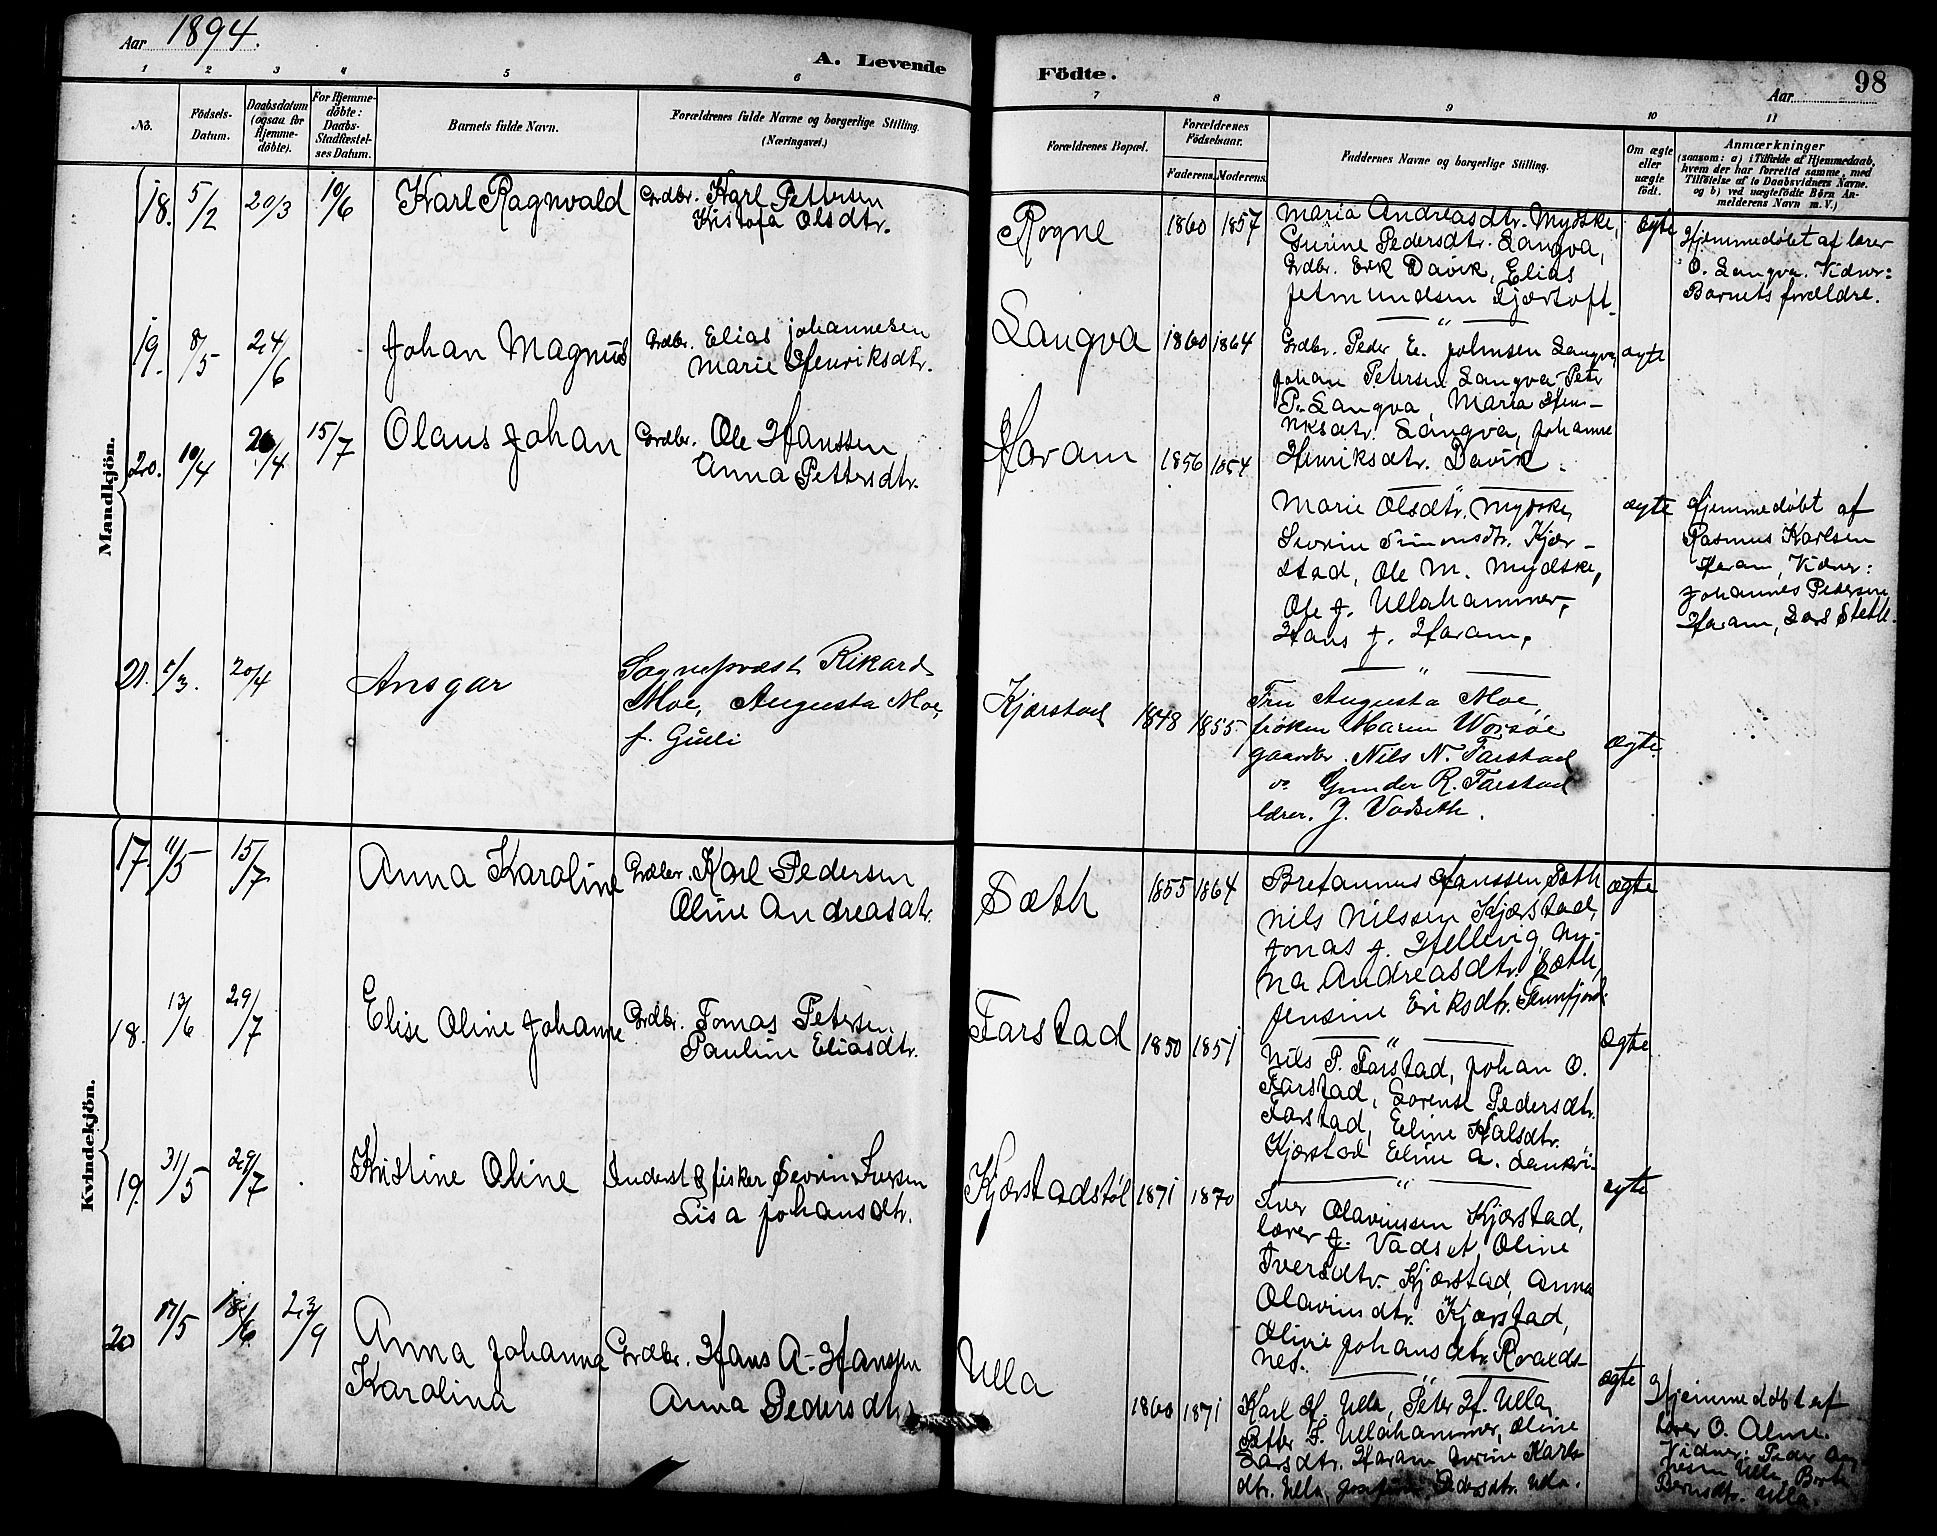 Aar 1894.
A. Levende
Födte.
Aar
98
1 2 3 4 5 6
7 8 9 10 11
No.
Födsels-
Datum.
Daabsdatum
(ogsaa for
Hjemme-
döbte).
For Hjemme-
döbte:
Daabs-
Stadfæstel-
ses Datum.
Barnets fulde Navn.
Forældrenes fulde Navne og borgerlige Stilling.
(Næringsvei.)
Forældrenes Bopæl.
Forældrenes
Födselsaar.
Faderens. Moderens.
Faddernes Navne og borgerlige Stilling.
Om ægte
eller
uægte
födt.
Anmærkninger
(saasom: a) i Tilfælde af Hjemmedaab,
hvem der har forrettet samme, med
Tilföielse af to Daabsvidners Navne.
og b) ved uægtefödte Börn An-
melderens Navn m. V.)
Mandkjön.
18. 5/2 20/3 10/6 Karl Ragnvald
Grdbr. Karl Pettersen
Kristofa Olsdtr.
Rogne 1860 1857
Maria Andreasdtr. Mydske,
Gurine Pedersdtr. Langva,
Grdbr. Erik Davik, Elias
Jetmundsen Fjærtoft
ægte
Hjemmedøbt af lærer
O. Langva. Vidner:
Barnets forældre.
19. 8/5 24/6 Johan Magnus
Grdbr. Elias Johannesen
Marie Henriksdtr.
Langva 1860 1864
Grdbr. Peder E. Johnsen Langva
Johan Petersen Langva Peter
P. Langva, Maria Hen-
riksdtr. Langva, Johanne
Henriksdtr. Davik.
ægte
20. 10/4 /4 15/7 Olaus Johan
Grdbr. Ole Hanssen
Anna Pettersdtr.
Haram 1856 1854
Marie Olsdtr. Mydske,
Severine Simonsdtr. Kjær-
stad, Ole M. Mydske,
Ole J. Ullahammer,
Hans J. Haram.
ægte
Hjemmedøbt af
Rasmus Karlsen
Haram, Vidner:
Johannes Pedersen
Haram, Lars Steth.
21. /3. 20/4 Ansgar
Sognepræst Rikard
Moe, Augusta Moe,
f. Gulli
Kjærstad 1848 1855
Fru Augusta Moe,
frøken Maren Worsøe
gaardbr. Nils N. Farstad
Gunder R. Farstad
lærer. J. Vadseth.
ægte
Kvindekjön.
17. 11/5 15/7 Anna Karoline
Grdbr. Karl Pedersen
Oline Andreasdtr.
Sæth 1855 1864
Hanssen Sæth
Nils Nilssen Kjærstad,
Jonas J. Hellevig, An-
na Andreasdtr. Sæth,
Jensine Eriksdtr. Tennfjord.
ægte
18. 13/6 29/7 Elise Oline Johanne
Grdbr. Tomas Petersen
Pauline Eliasdtr.
Farstad 1850 1851
Nils P. Farstad, Johan O.
Farstad, Lorense Pedersdtr.
Farstad, Eline
Kjærstad Eline A.
ægte
19. 31/5 29/7 Kristine Oline
Inderst & fisker Severin Iversen
Lisa Johansdtr.
Kjærstadstøl 1871 1870
Iver Olavinssen Kjærstad,
lærer J. Vadset, Oline
Iversdtr. Kjærstad, Anna
Olavinsdtr. Kjærstad,
Oline Johansdtr. Roalds-
nes.
ægte
20 17/5 18/6 23/9 Anna Johanna
Karolina
Grdbr. Hans A. Hanssen
Anna Pedersdtr.
Ulla
1860 1871
Karl H. Ulla, Peter H. Ulla,
Petter S. Ullahammer, Oline
Larsdtr. Haram, Karls-
dtr. Ulla, Pedersdtr. Ulla.
ægte
Hjemmedøbt af
lærer O. Alme.
Vidner: Peder
Ulla,
Ulla.